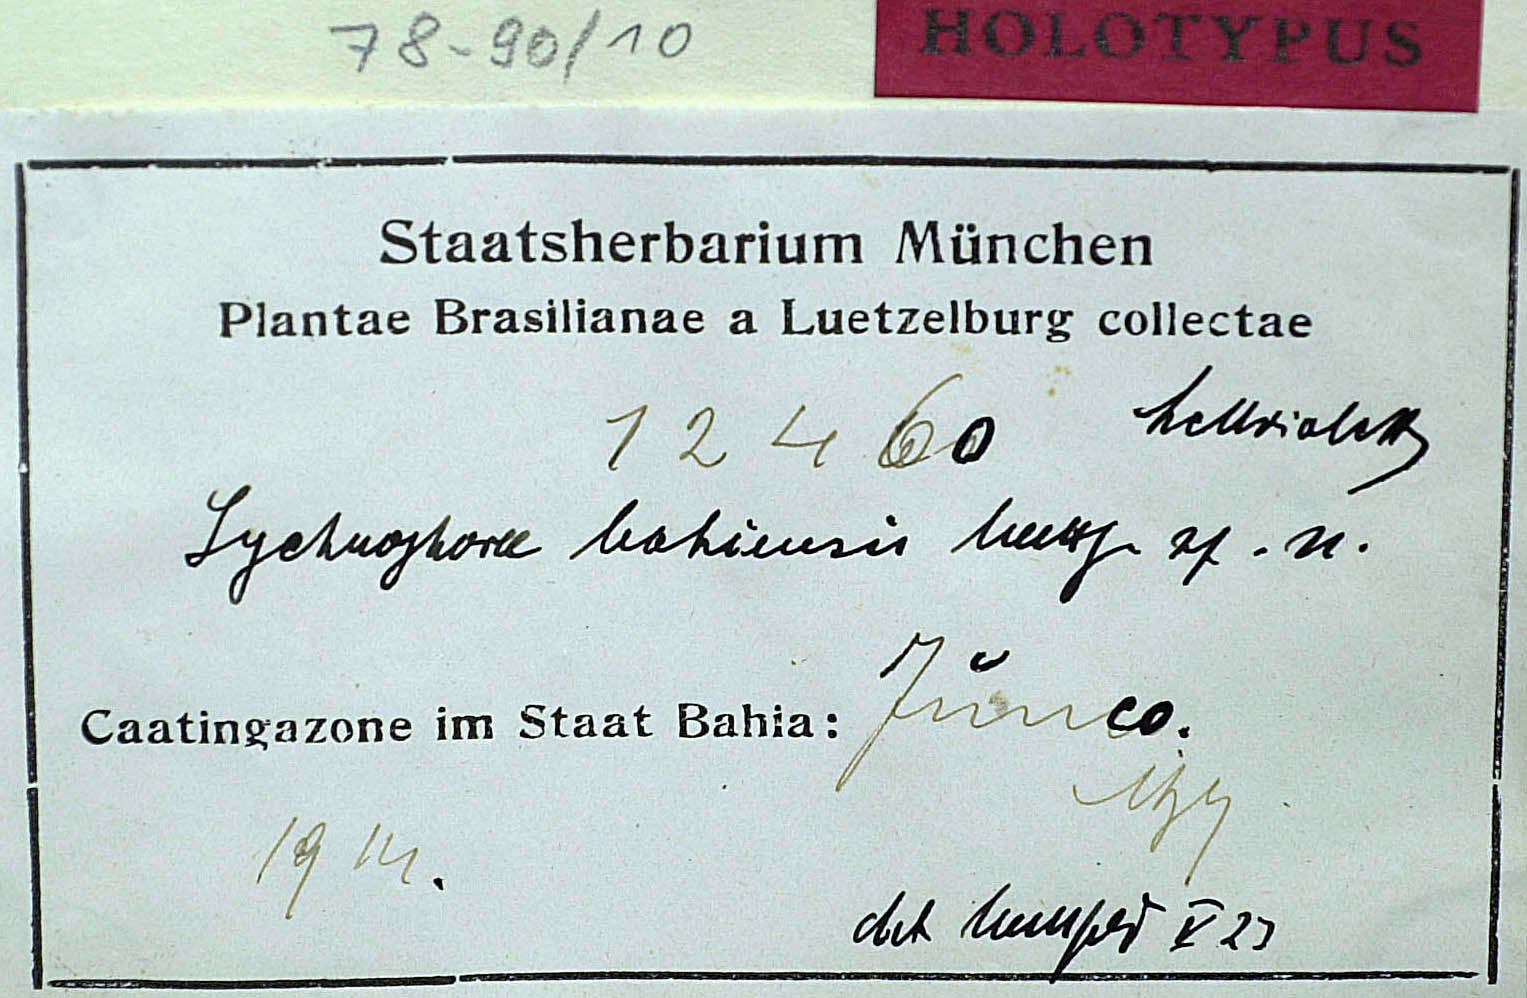 78-90/10
HOLOTYPUS
Staatsherbarium München
Plantae Brasilianae a Luetzelburg collectae
12460
Lychnophora bahiensis Mattf. sp. n.
Caatingazone im Staat Bahia: Jŭnco.
Ltzbg
1914.
det Mattfeld V 23